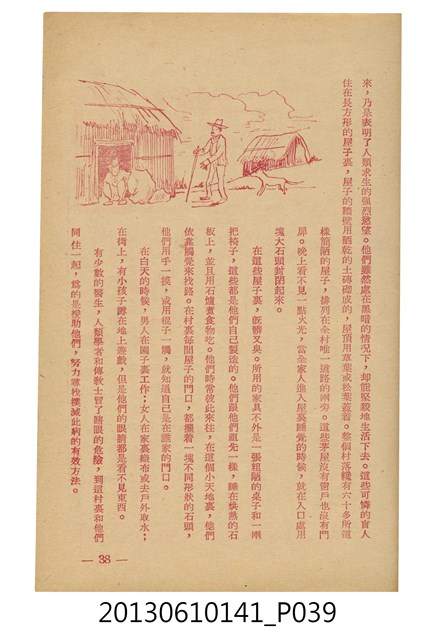 來，乃是表明了人類求生的强烈慾望。他們雖然處在黑暗的情況下，却能堅毅地生活下去。這些可憐的盲人
住在長方形的屋子裏，屋子的牆壁用晒乾的土磚砌成的，屋頂用草葉或松葉蓋着。整個村落纔有六十多所這
樣簡陋的屋子，排列在全村唯一道路的兩旁。這些茅屋沒有窗戶也沒有門
扉。晚上看不見一點火光，當全家人進入屋裏睡覺的時候，就在入口處用
塊大石頭封閉起來。
在這些屋子裏，旣髒又臭。所用的家具不外是一張粗陋的桌子和一兩
把椅子，這些都是他們自己製造的。他們跟他們祖先一樣，睡在燒熱的石
板上，並且用石爐煮食物吃。他們時常彼此來往，在這個小天地裏，他們
依靠觸覺來找路。在村裏每間屋子的門口，都擺着一塊不同形狀的石頭，
他們用手一摸，或用棍子一觸，就知道自己是在誰家的門口。
在白天的時候，男人在園子裏工作；女人在家裏織布或去戶外取水；
在街上，有小孩子蹲在地上遊戲，但是他們的眼睛都是看不見東西。
有少數的醫生，人類學者和傳教士冒了瞎眼的危險，到這村裏和他們
同住一起，爲的是援助他們，努力尋找撲滅此病的有效方法。
— 38 —
20130610141_P039